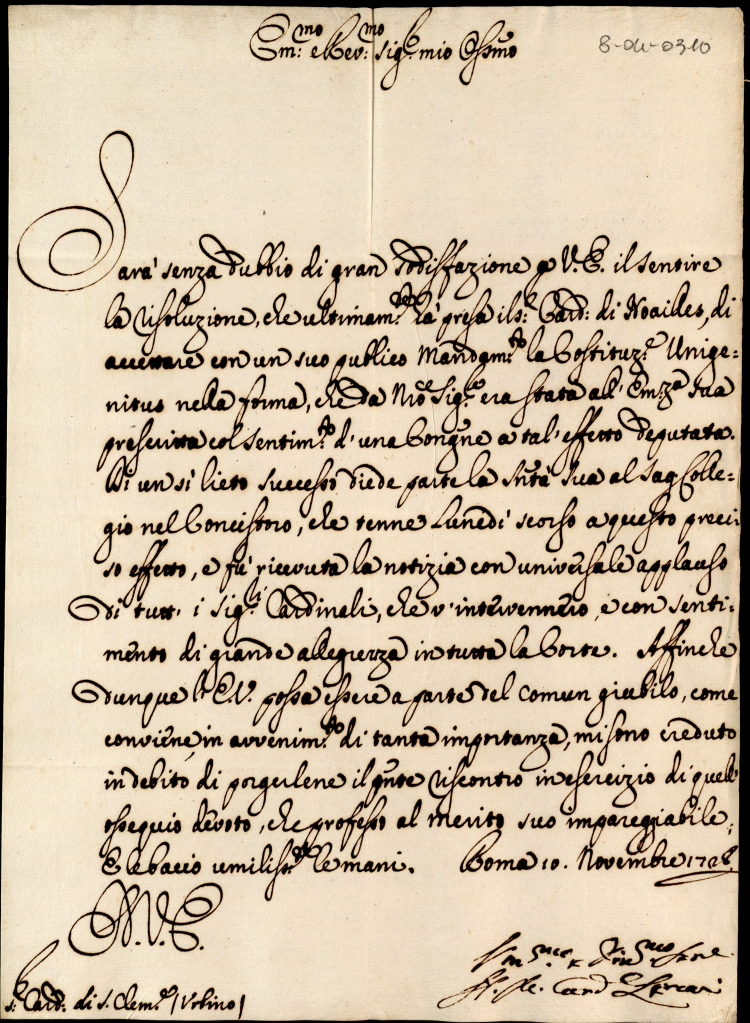 8-04-0310
Em:mo e Rev:mo sig:r mio Oss:mo
Sarà senza dubbio di gran sodisffazione p V. E. il sentire
la risoluzione, che ultimam:te hà presa il s:r Card: di Noailles, di
accettare con un suo publico Mandam:to la Costituz:e Unige-
nitus nella forma, che da Nro Sig:re era stata all' Em:za Sua
prescritta col sentim:to d' una Congne a tal' effetto deputata.
Di un sì lieto successo diede parte la Sntà Sua al Sag Colle-
gio nel Concistoro, che tenne Lunedì scorso a questo preci-
so effetto, e fù ricevuta la notizia con universale applauso
di tutti i sig:ri Cardinali, che v' intervennero, e con senti-
mento di grande allegrezza in tutta la Corte. Affinche
dunque l' E.V. possa essere a parte del comun giubilo, come
conviene, in avvenim:to di tanta importanza, mi sono creduto
in debito di porgerlene il pnte riscontro in esercizio di quell'
ossequio devoto, che professo al merito suo impareggiabile,
E le bacio umiliss:te le mani. Roma 10. Novembre 1728.
D. V. E.
s:r Card: di S. Clem:te (Urbino)
Card Lercari